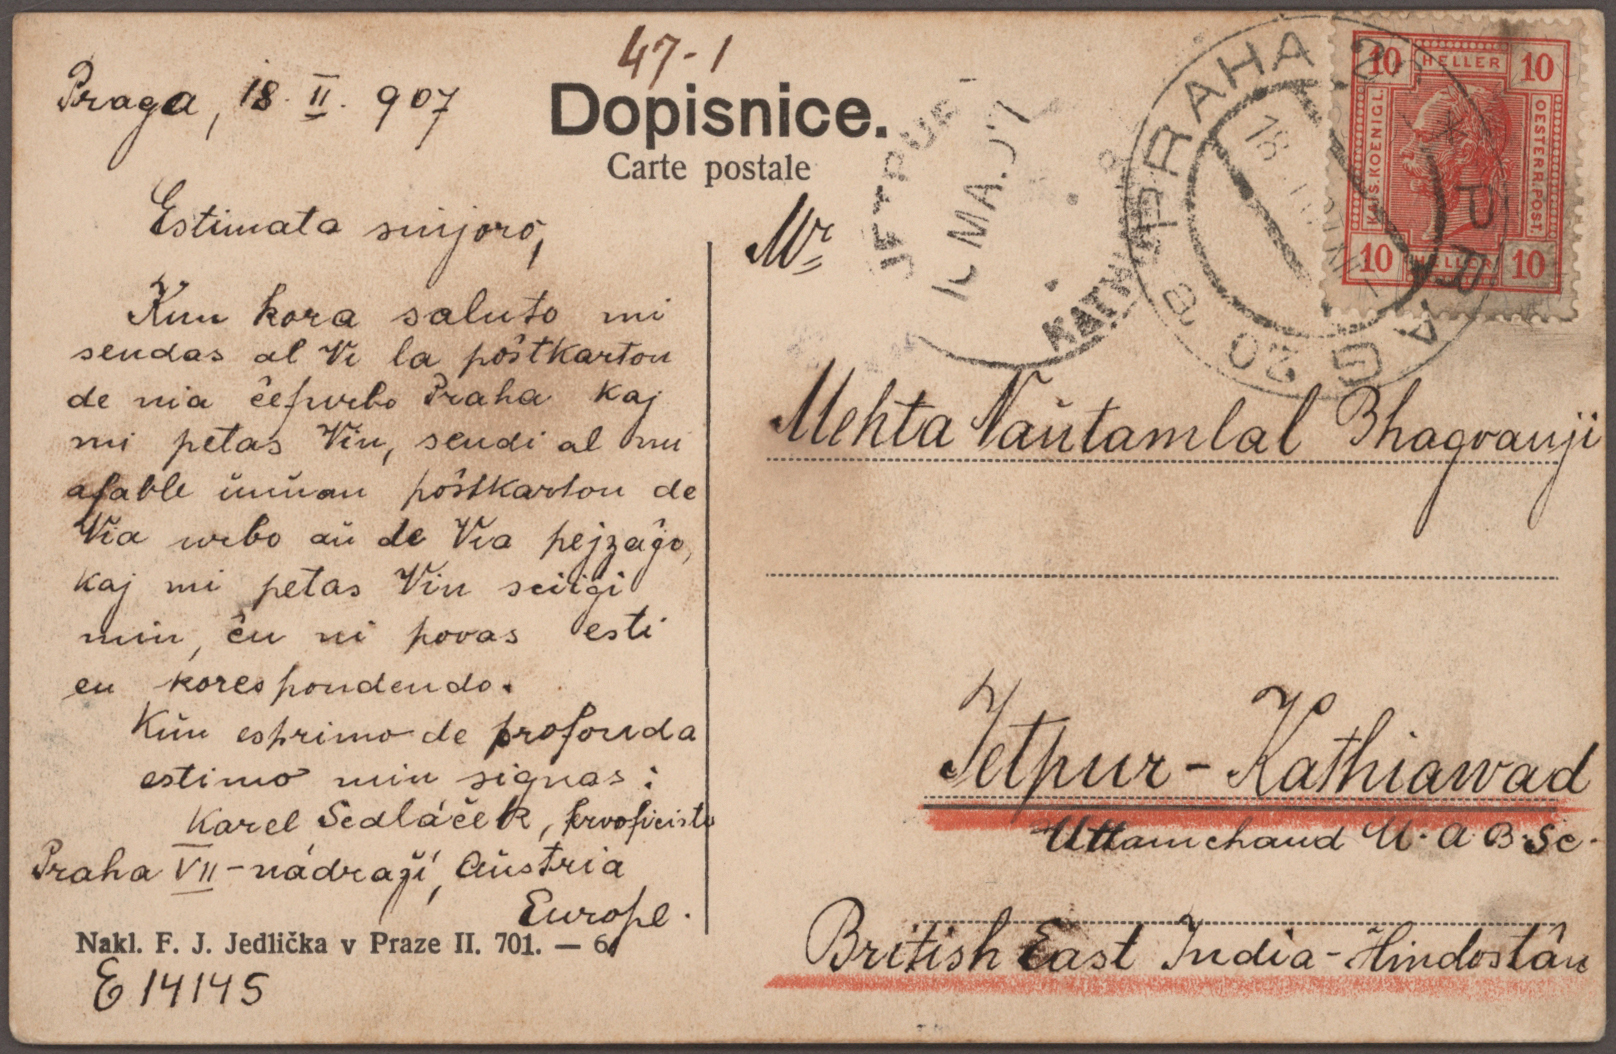 47-1
Praga, 18. II. 907
Dopisnice.
Carte postale
Estimata sinjoro,
Kun kora saluto mi
sendas al Vi la poŝtkarton
de nia ĉefurbo Praha kaj
mi petas Vin, sendi al mi
afable unuan poŝtkarton de
Via urbo aŭ de Via pejzaĝo,
kaj mi petas Vin sciigi
min, ĉu ni povas esti
en korespondendo.
Kun esprimo de profonda
estimo min signas:
Karel Sedláček, hervoficisto
Praha VII - nádraží, Aŭstria
Europe.
Nakl. F. J. Jedlička v Praze II. 701. — 6
E 14145
JETPUR
MA.07
PRAHA
18
20
10 HELLER 10
KAIS. KOENIGL.
OESTERR. POST.
10 HELLER 10
Mr
Mehta Naŭtamlal Bhagvanji
Jetpur - Kathiawad
Uttamchand U. A B. Sc.
British East India - Hindostân